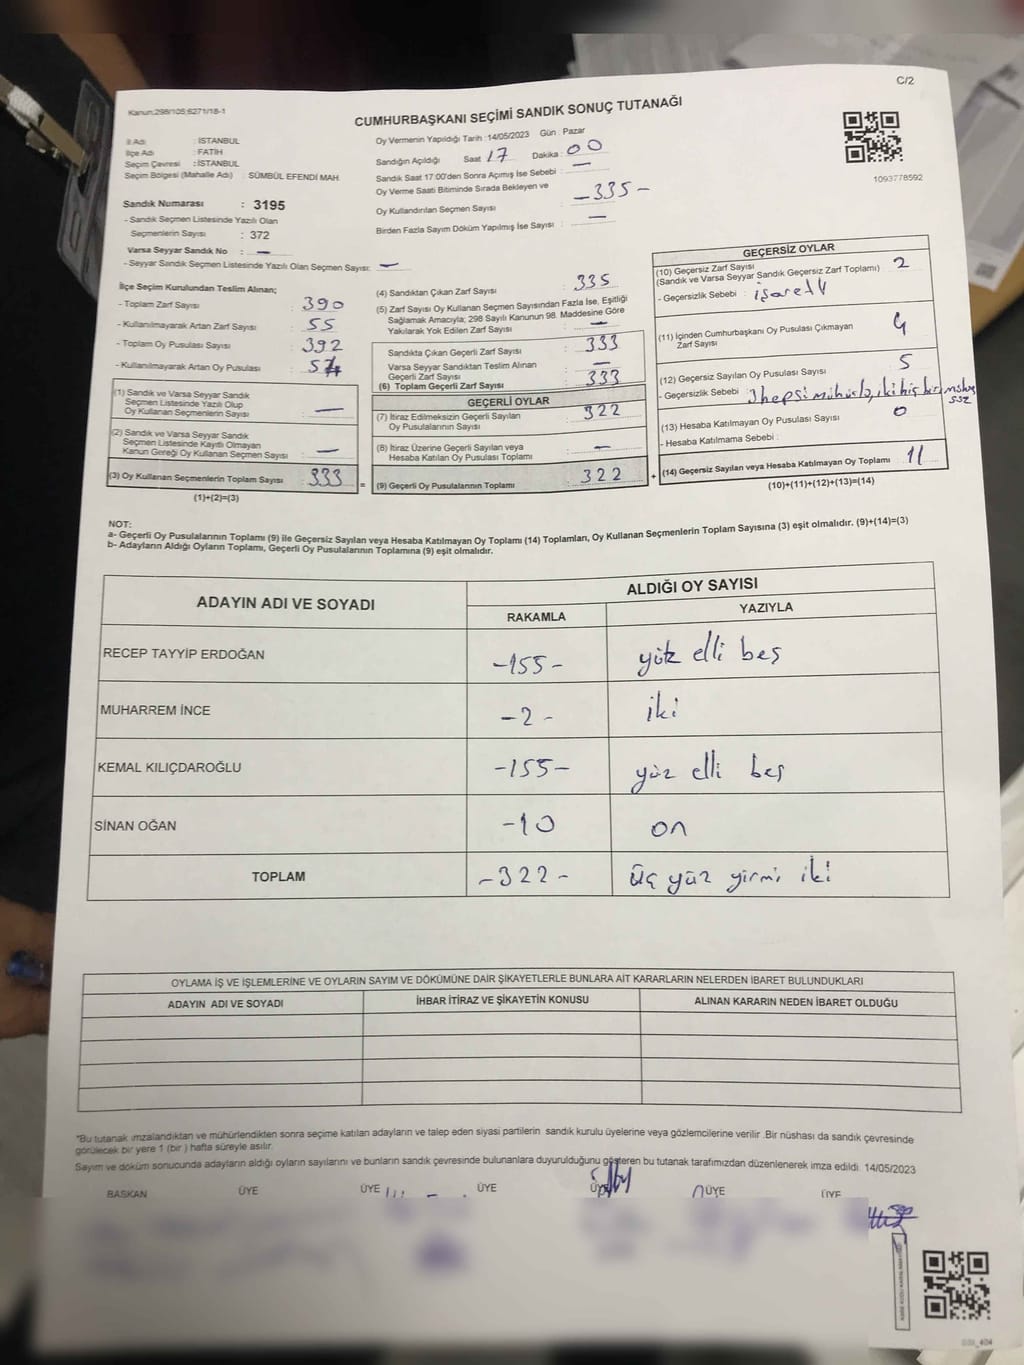 C/2
Kanun:298/105;6271/18-1
CUMHURBAŞKANI SEÇİMİ SANDIK SONUÇ TUTANAĞI
1093778592
İl Adı : İSTANBUL
İlçe Adı : FATİH
Seçim Çevresi : İSTANBUL
Seçim Bölgesi (Mahalle Adı) : SÜMBÜL EFENDİ MAH.
Sandık Numarası : 3195
- Sandık Seçmen Listesinde Yazılı Olan
Seçmenlerin Sayısı : 372
Varsa Seyyar Sandık No : —
- Seyyar Sandık Seçmen Listesinde Yazılı Olan Seçmen Sayısı: —
Oy Vermenin Yapıldığı Tarih :14/05/2023 Gün : Pazar
Sandığın Açıldığı Saat 17 Dakika : 00
Sandık Saat 17:00'den Sonra Açımış İse Sebebi : —
Oy Verme Saati Bitiminde Sırada Bekleyen ve
Oy Kullandırılan Seçmen Sayısı : -335-
Birden Fazla Sayım Döküm Yapılmış İse Sayısı : —
İlçe Seçim Kurulundan Teslim Alınan;
- Toplam Zarf Sayısı : 390
- Kullanılmayarak Artan Zarf Sayısı : 55
- Toplam Oy Pusulası Sayısı : 392
- Kullanılmayarak Artan Oy Pusulası :
(1) Sandık ve Varsa Seyyar Sandık
Seçmen Listesinde Yazılı Olup
Oy Kullanan Seçmenlerin Sayısı : —
(2) Sandık ve Varsa Seyyar Sandık
Seçmen Listesinde Kayıtlı Olmayan
Kanun Gereği Oy Kullanan Seçmen Sayısı : —
(3) Oy Kullanan Seçmenlerin Toplam Sayısı : 333
(1)+(2)=(3)
(4) Sandıktan Çıkan Zarf Sayısı : 335
(5) Zarf Sayısı Oy Kullanan Seçmen Sayısından Fazla İse, Eşitliği
Sağlamak Amacıyla; 298 Sayılı Kanunun 98. Maddesine Göre
Yakılarak Yok Edilen Zarf Sayısı : —
Sandıkta Çıkan Geçerli Zarf Sayısı : 333
Varsa Seyyar Sandıktan Teslim Alınan
Geçerli Zarf Sayısı : —
(6) Toplam Geçerli Zarf Sayısı : 333
GEÇERLİ OYLAR
(7) İtiraz Edilmeksizin Geçerli Sayılan
Oy Pusulalarının Sayısı : 322
(8) İtiraz Üzerine Geçerli Sayılan veya
Hesaba Katılan Oy Pusulası Toplamı : —
= (9) Geçerli Oy Pusulalarının Toplamı : 322
GEÇERSİZ OYLAR
(10) Geçersiz Zarf Sayısı
(Sandık ve Varsa Seyyar Sandık Geçersiz Zarf Toplamı) : 2
- Geçersizlik Sebebi :
(11) İçinden Cumhurbaşkanı Oy Pusulası Çıkmayan
Zarf Sayısı : 4
(12) Geçersiz Sayılan Oy Pusulası Sayısı : 5
- Geçersizlik Sebebi : hepsi
(13) Hesaba Katılmayan Oy Pusulası Sayısı : 0
- Hesaba Katılmama Sebebi :
+ (14) Geçersiz Sayılan veya Hesaba Katılmayan Oy Toplamı : 11
(10)+(11)+(12)+(13)=(14)
NOT:
a- Geçerli Oy Pusulalarının Toplamı (9) ile Geçersiz Sayılan veya Hesaba Katılmayan Oy Toplamı (14) Toplamları, Oy Kullanan Seçmenlerin Toplam Sayısına (3) eşit olmalıdır. (9)+(14)=(3)
b- Adayların Aldığı Oyların Toplamı, Geçerli Oy Pusulalarının Toplamına (9) eşit olmalıdır.
ADAYIN ADI VE SOYADI ALDIĞI OY SAYISI
RAKAMLA YAZIYLA
RECEP TAYYİP ERDOĞAN -155- yüz elli beş
MUHARREM İNCE -2- iki
KEMAL KILIÇDAROĞLU -155- yüz elli beş
SİNAN OĞAN -10 on
TOPLAM -322- üç yüz yirmi iki
OYLAMA İŞ VE İŞLEMLERİNE VE OYLARIN SAYIM VE DÖKÜMÜNE DAİR ŞİKAYETLERLE BUNLARA AİT KARARLARIN NELERDEN İBARET BULUNDUKLARI
ADAYIN ADI VE SOYADI İHBAR İTİRAZ VE ŞİKAYETİN KONUSU ALINAN KARARIN NEDEN İBARET OLDUĞU
*Bu tutanak imzalandıktan ve mühürlendikten sonra seçime katılan adayların ve talep eden siyasi partilerin sandık kurulu üyelerine veya gözlemcilerine verilir .Bir nüshası da sandık çevresinde
görülecek bir yere 1 (bir ) hafta süreyle asılır.
Sayım ve döküm sonucunda adayların aldığı oyların sayılarını ve bunların sandık çevresinde bulunanlara duyurulduğunu gösteren bu tutanak tarafımızdan düzenlenerek imza edildi. 14/05/2023
BAŞKAN ÜYE ÜYE ÜYE ÜYE ÜYE ÜYE